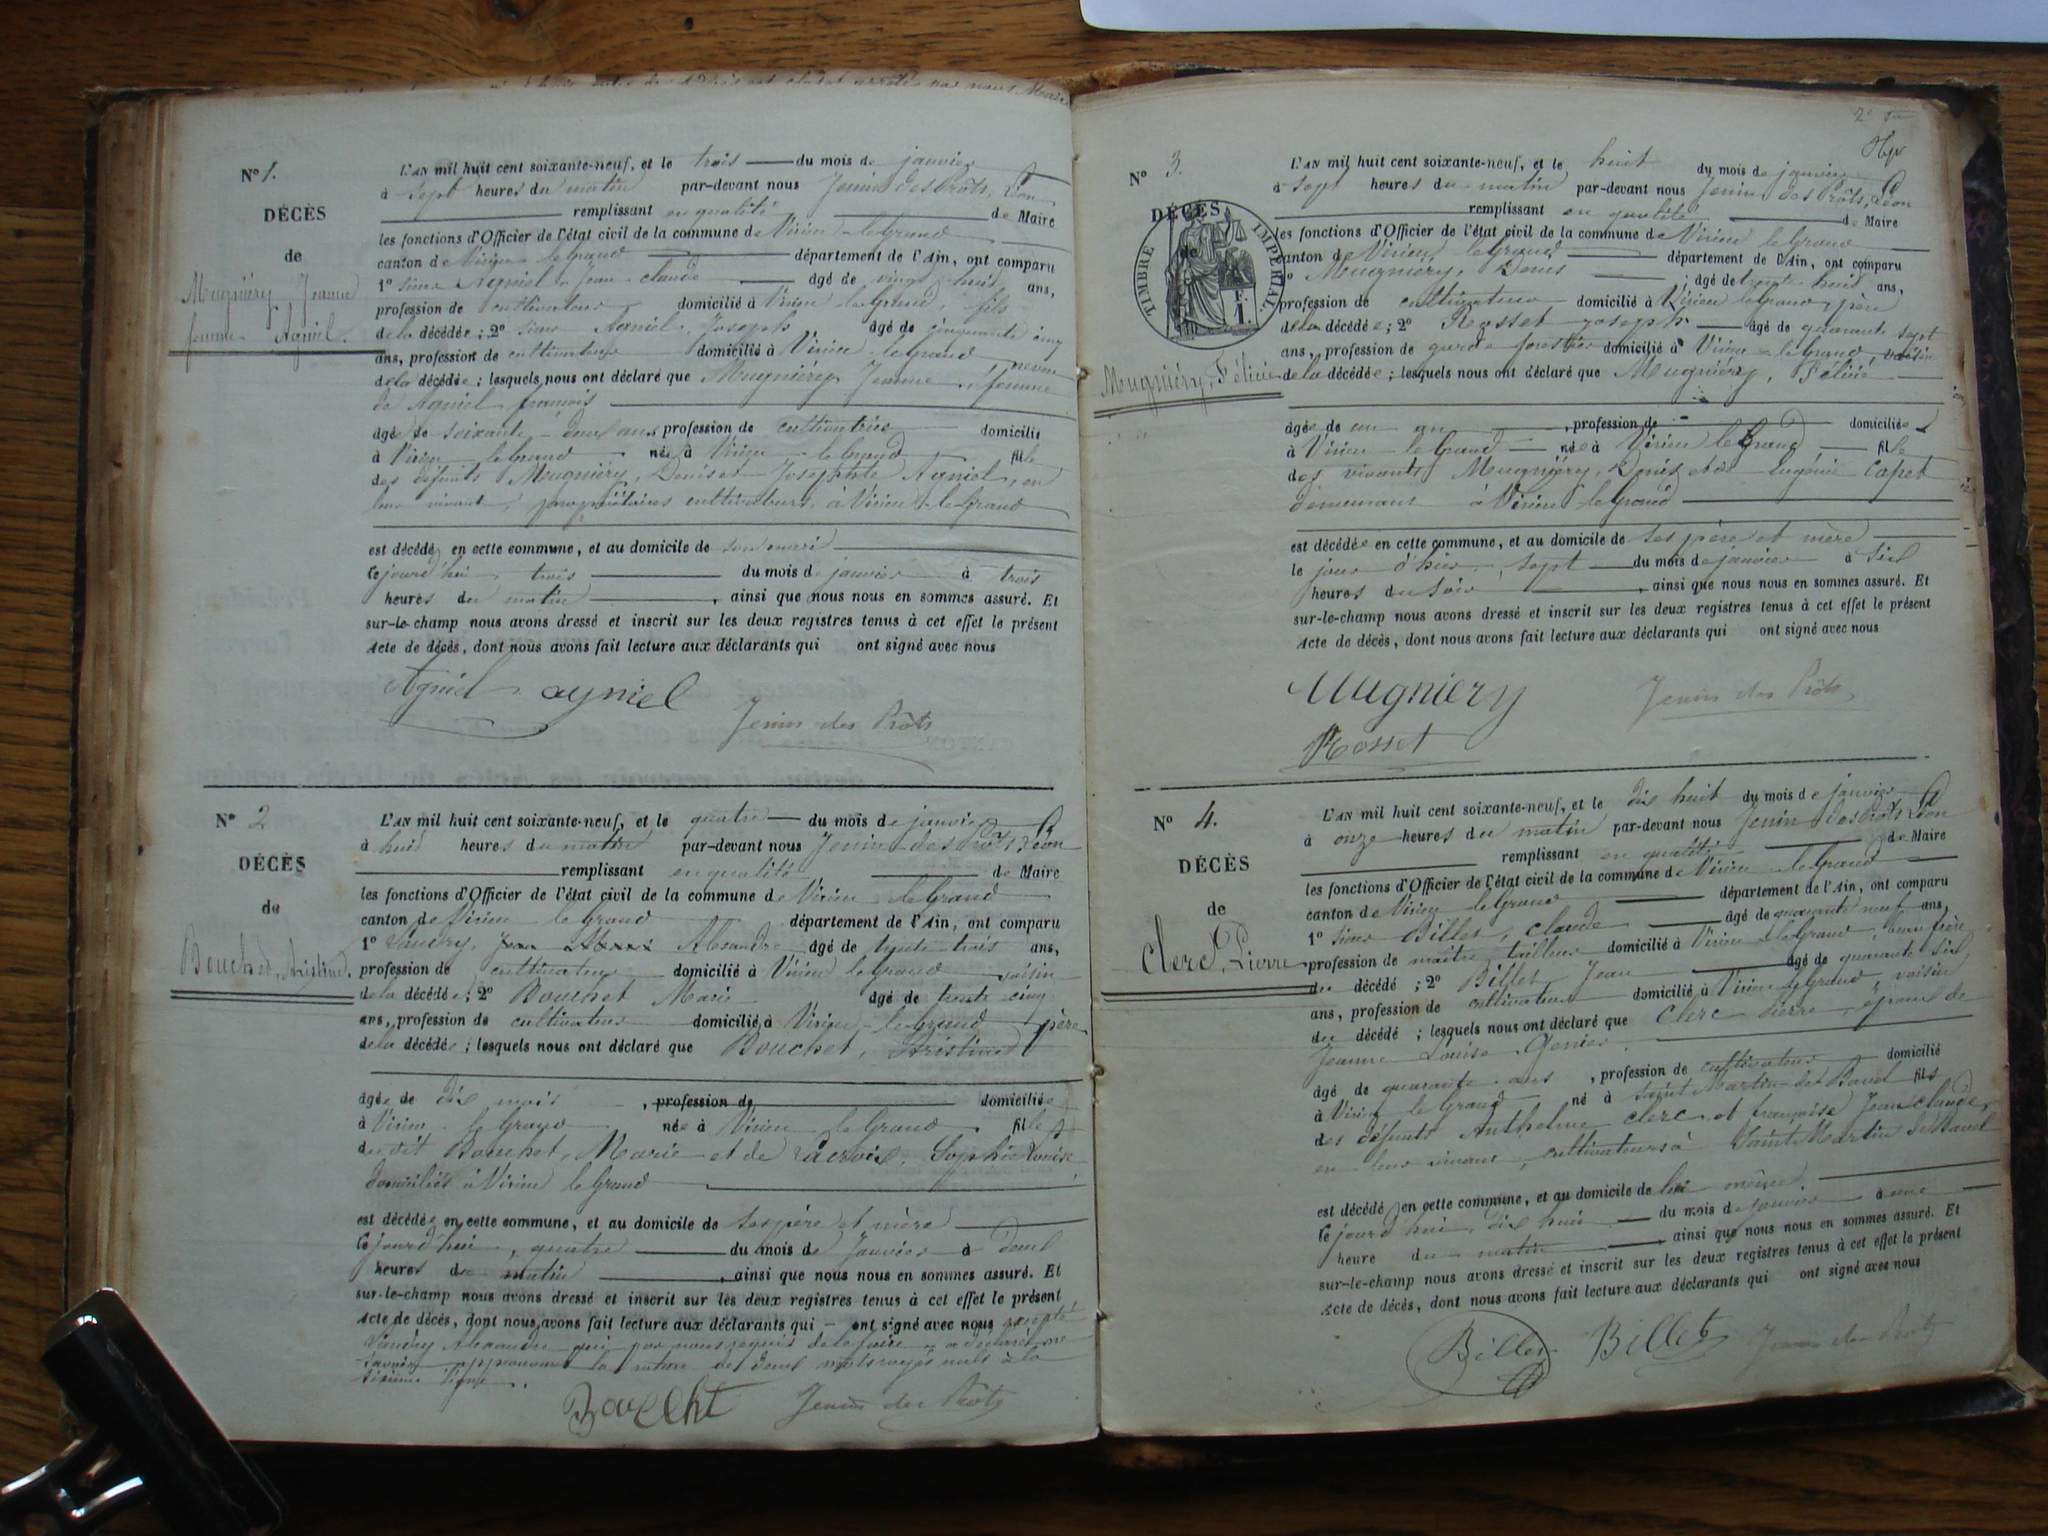 N° 1.
DÉCÈS
de
Mugniéry, Jeanne
femme Agniel.
L'AN mil huit cent soixante-neuf, et le trois du mois de janvier
à sept heures du matin par-devant nous Jenin des Prôts, Léon
remplissant en qualité de Maire
les fonctions d'Officier de l'état civil de la commune de Virieu-le-Grand
canton de Virieu-le-Grand département de l'Ain, ont comparu
1° sieur Agniel Jean-claude âgé de vingt huit ans,
profession de cultivateur domicilié à Virieu-le-Grand, fils
de la décédée ; 2° sieur Agniel, Joseph âgé de cinquante cinq
ans, profession de cultivateur domicilié à Virieu-le-Grand, neveu
de la décédée ; lesquels nous ont déclaré que Mugniéry Jeanne, femme
de Agniel françois
âgée de soixante-deux ans, profession de cultivatrice domiciliée
à Virieu-le-Grand née à Virieu-le-Grand fille
des défunts Mugniéry, Denis et Josephte Agniel, en
leur vivant, propriétaires cultivateurs, à Virieu-le-Grand
est décédée en cette commune, et au domicile de son mari
le jourd'hui trois du mois de janvier à trois
heures du matin, ainsi que nous nous en sommes assuré. Et
sur-le-champ nous avons dressé et inscrit sur les deux registres tenus à cet effet le présent
Acte de décès, dont nous avons fait lecture aux déclarants qui ont signé avec nous
Agniel agniel
Jenin des Prôts
N° 2
DÉCÈS
de
Bouchet, Aristine.
L'AN mil huit cent soixante-neuf, et le quatre du mois de janvier
à huit heures du matin par-devant nous Jenin des Prôts, Léon
remplissant en qualité de Maire
les fonctions d'Officier de l'état civil de la commune de Virieu-le-Grand
canton de Virieu le Grand département de l'Ain, ont comparu
1° Vaudry, Alexandre âgé de trente trois ans,
profession de cultivateur domicilié à Virieu le Grand voisin
de la décédée ; 2° Bouchet Marie âgé de trente cinq
ans, profession de cultivateur domicilié à Virieu-le-Grand, père
de la décédée ; lesquels nous ont déclaré que Bouchet, Aristine
âgée de dix mois, profession de domiciliée
à Virieu-le Grand née à Virieu le Grand fille
du dit Bouchet, Marie et de Lacroix, Sophie Louise
domiciliés à Virieu le Grand
est décédée en cette commune, et au domicile de ses père et mère
le jourd'hui, quatre du mois de Janvier à deux
heures du matin, ainsi que nous nous en sommes assuré. Et
sur-le-champ nous avons dressé et inscrit sur les deux registres tenus à cet effet le présent
Acte de décès, dont nous avons fait lecture aux déclarants qui ont signé avec nous excepté
Vaudry Alexandre qui par nous requis de le faire a déclaré ne
savoir approuvant la rature de deux mots rayés nuls à la
sixième ligne.
Bouchet
Jenin des Prôts
2e
N° 3.
DÉCÈS
de
TIMBRE IMPÉRIAL.
Mugniéry, Félicie
L'AN mil huit cent soixante-neuf, et le huit du mois de janvier
à sept heures du matin par-devant nous Jenin des Prôts, Léon
remplissant en qualité de Maire
les fonctions d'Officier de l'état civil de la commune de Virieu le Grand
canton de Virieu le Grand département de l'Ain, ont comparu
1° Mugniéry, Denis âgé de trente huit ans,
profession de cultivateur domicilié à Virieu le Grand, père
de la décédée ; 2° Rosset Joseph âgé de quarante sept
ans, profession de garde forestier domicilié à Virieu-le-Grand voisin
de la décédée ; lesquels nous ont déclaré que Mugniéry, Félicie
âgée de un an, profession de domiciliée
à Virieu-le-Grand née à Virieu le Grand fille
des vivants Mugniéry, Denis et de Eugénie Capet
demeurant à Virieu le Grand
est décédée en cette commune, et au domicile de ses père et mère
le jour d'hier, sept du mois de janvier à six
heures du soir, ainsi que nous nous en sommes assuré. Et
sur-le-champ nous avons dressé et inscrit sur les deux registres tenus à cet effet le présent
Acte de décès, dont nous avons fait lecture aux déclarants qui ont signé avec nous
Mugniery
Jenin des Prôts
Rosset
N° 4.
DÉCÈS
de
Clerc, Pierre
L'AN mil huit cent soixante-neuf, et le dix huit du mois de janvier
à onze heures du matin par-devant nous Jenin des Prôts Léon
remplissant en qualité de Maire
les fonctions d'Officier de l'état civil de la commune de Virieu-le-Grand
canton de Virieu le Grand département de l'Ain, ont comparu
1° sieur Billet, Claude âgé de quarante neuf ans,
profession de maître tailleur domicilié à Virieu-le-Grand, beau frère
du décédé ; 2° Billet Jean âgé de quarante six
ans, profession de cultivateur domicilié à Virieu le Grand, voisin
du décédé ; lesquels nous ont déclaré que Clerc Pierre, époux de
Jeanne Louise Genier
âgé de quarante ans, profession de cultivateur domicilié
à Virieu le Grand né à Saint Martin-de-Bavel fils
des défunts Anthelme Clerc et françoise Jeanclaude,
en leur vivant, cultivateurs à Saint Martin de Bavel
est décédé en cette commune, et au domicile de lui même.
le jourd'hui, dix huit du mois de janvier à une
heure du matin, ainsi que nous nous en sommes assuré. Et
sur-le-champ nous avons dressé et inscrit sur les deux registres tenus à cet effet le présent
Acte de décès, dont nous avons fait lecture aux déclarants qui ont signé avec nous
Billet Billet Jenin des Prôts